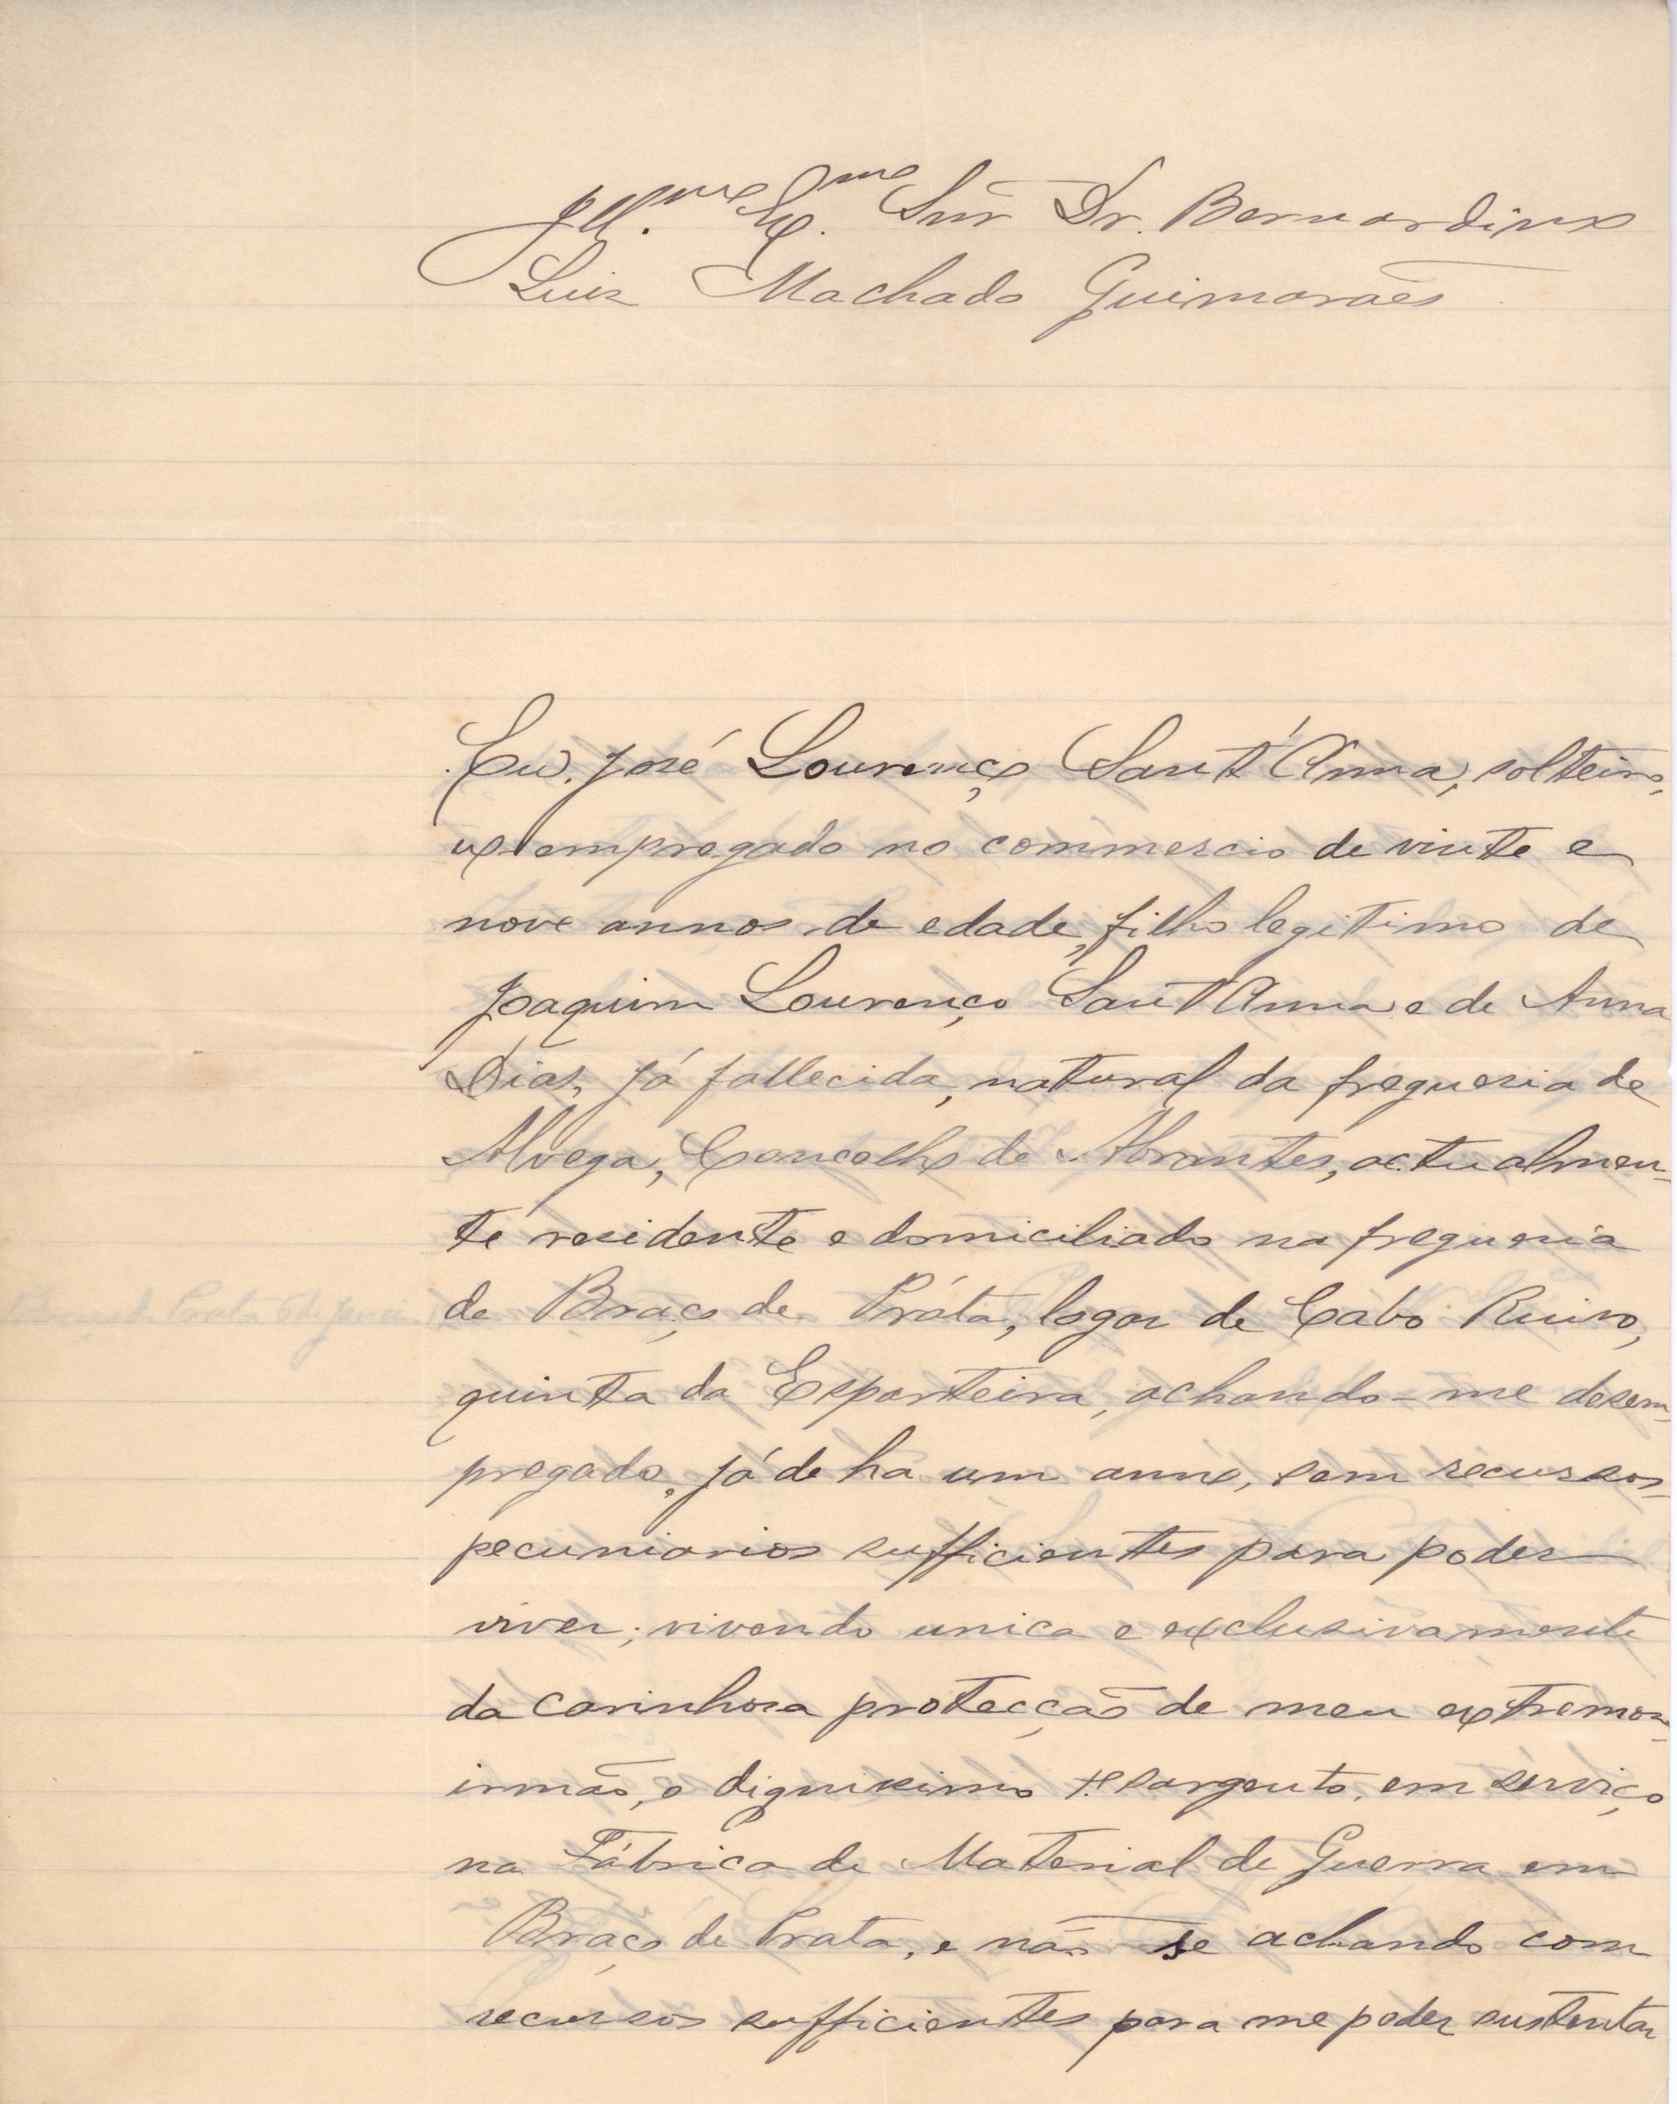 Ill.mo Ex.mo Snr Dr. Bernardino
Luiz Machado Guimarães
Eu, José Lourenço Sant'Anna, solteiro,
ex-empregado no commercio de vinte e
nove annos de edade, filho legitimo de
Joaquim Lourenço Sant'Anna e de Anna
Dias, já fallecida, natural da freguesia de
Alvega, Concelho de Abrantes, actualmen-
te residente e domiciliado na freguesia
de Braço de Práta, logar de Cabo Ruivo,
quinta da Esparteira, achando-me desem-
pregado, já de ha um anno, sem recursos
pecuniarios sufficientes para poder
viver; vivendo unica e exclusivamente
da carinhosa protecção de meu extremoso
irmão, o dignissimo 1.º sargento, em serviço
na Fábrica de Material de Guerra em
Braço de Prata, e não se achando com
recursos sufficientes para me poder sustentar